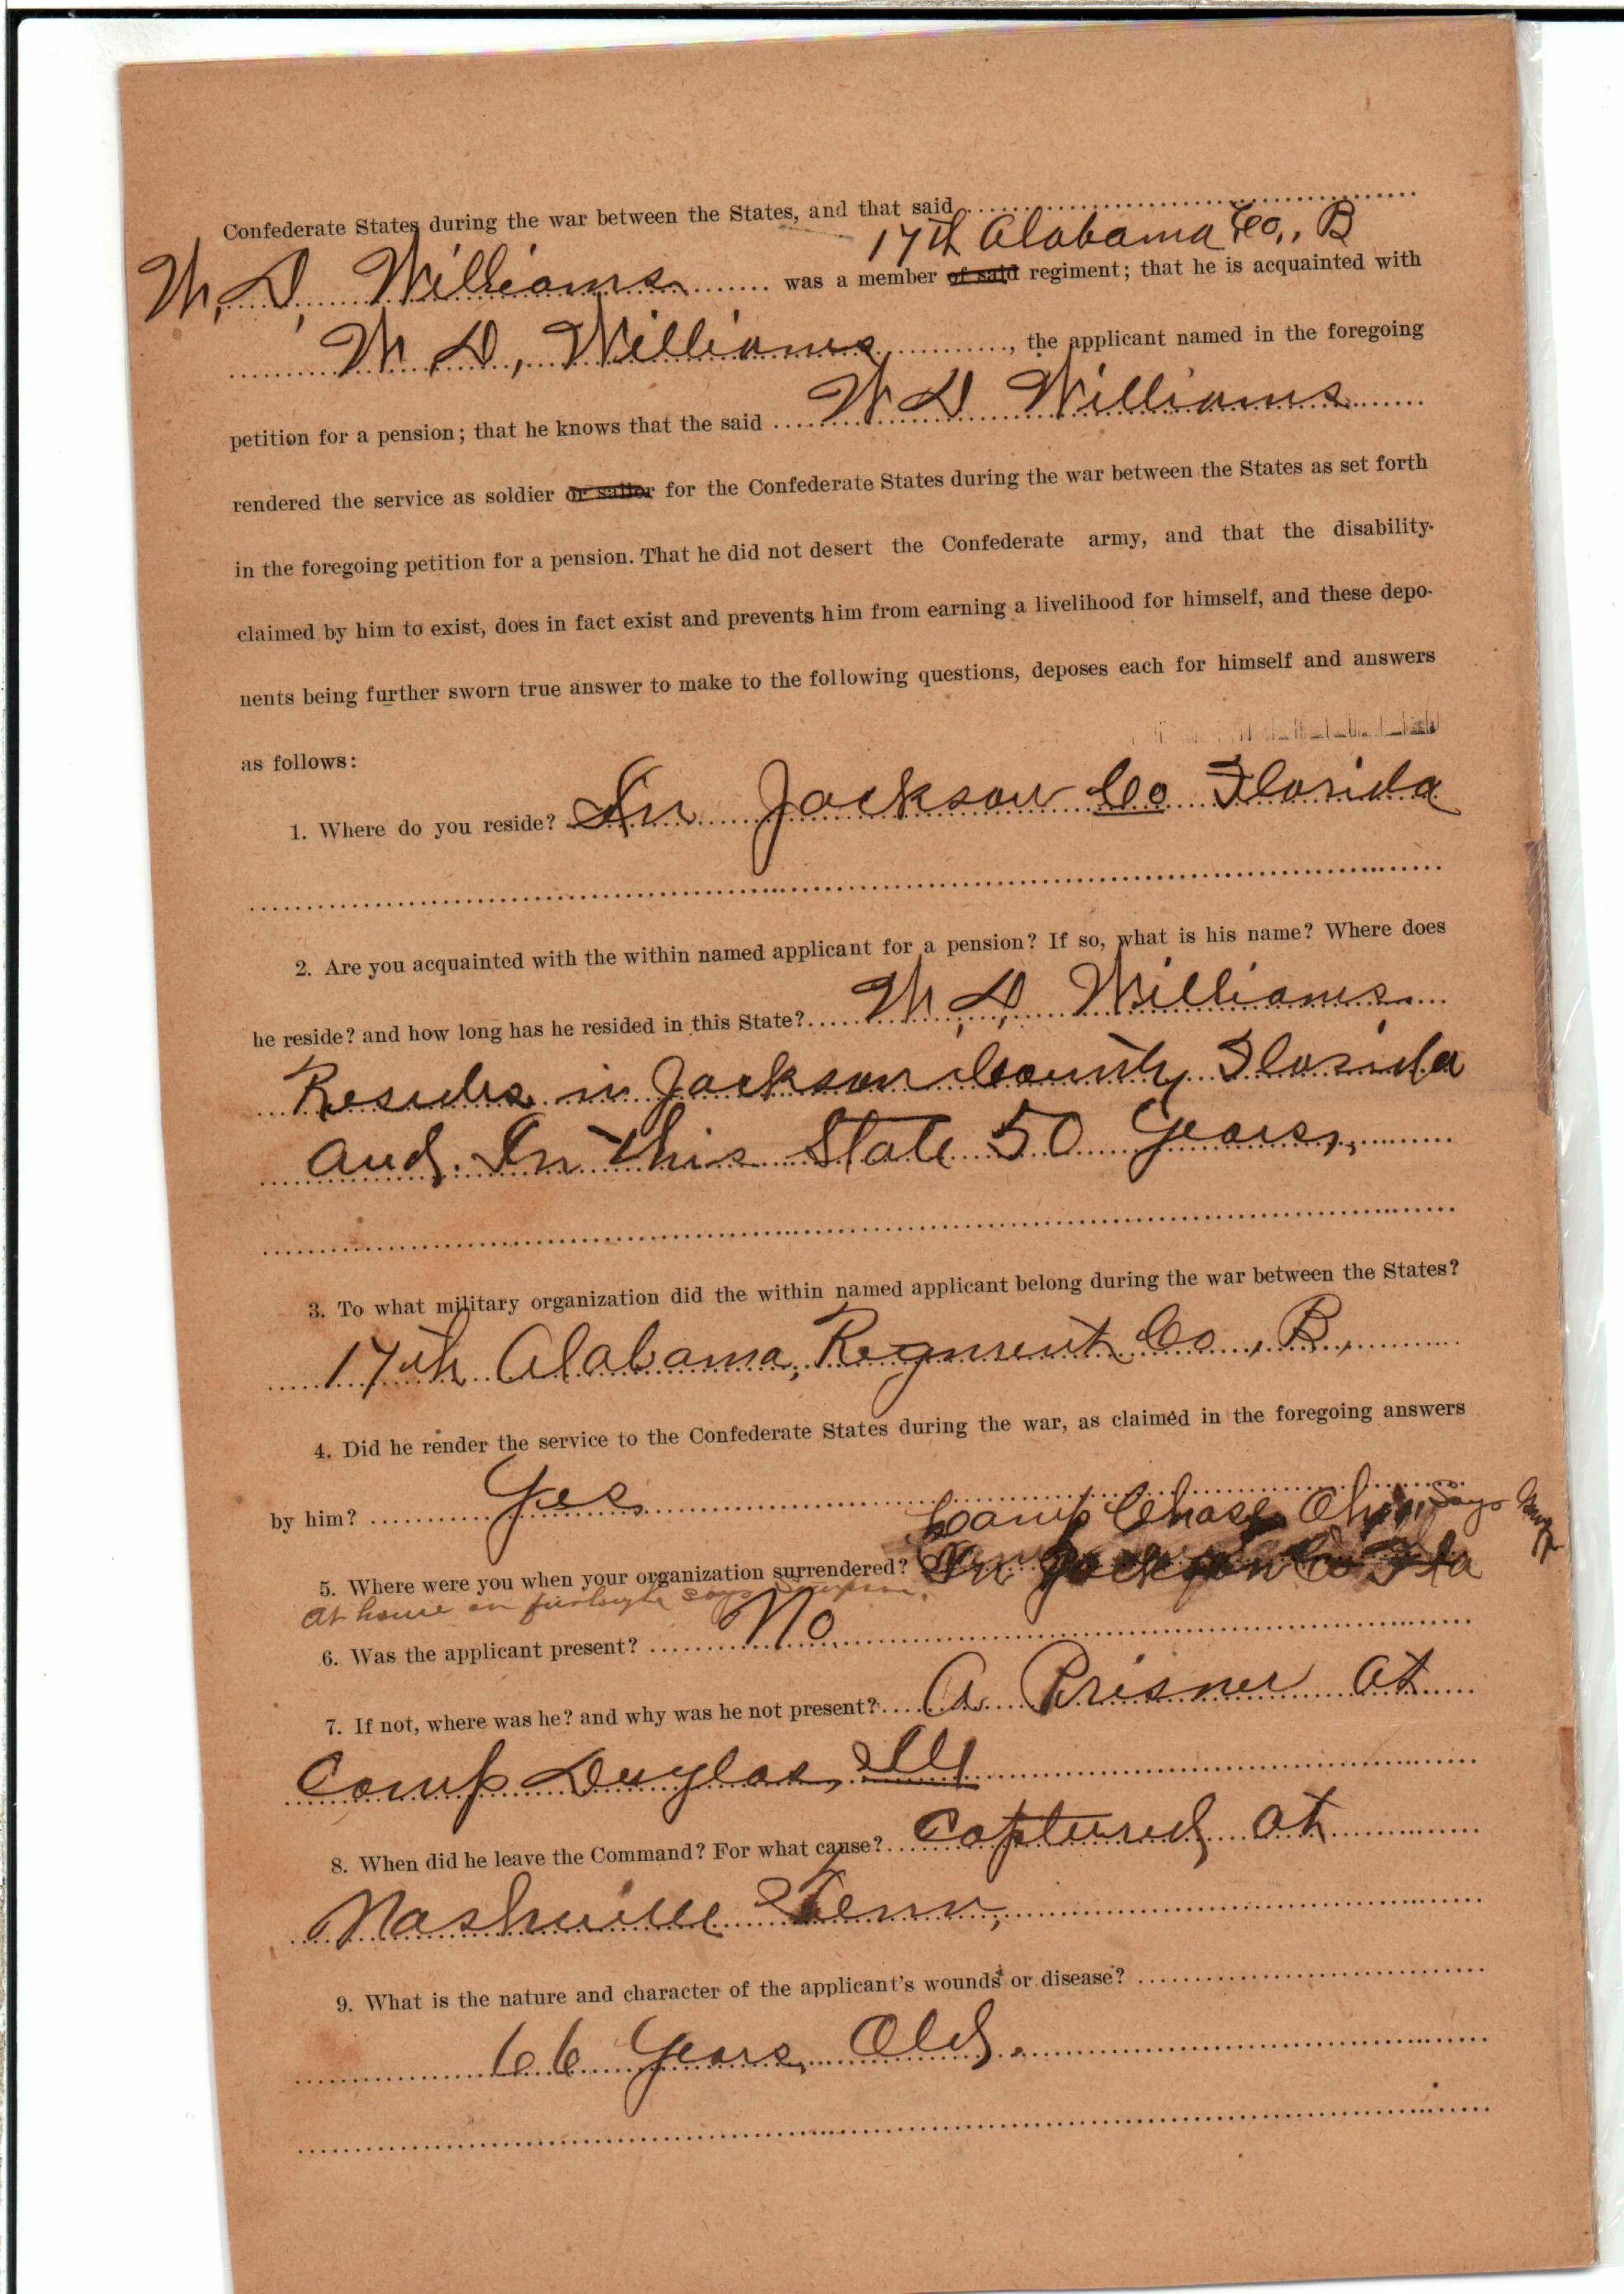 Confederate States during the war between the States, and that said
17th Alabama Co., B
W. D. Williams was a member of said regiment; that he is acquainted with
W. D. Williams, the applicant named in the foregoing
petition for a pension; that he knows that the said W D Williams
rendered the service as soldier or sailor for the Confederate States during the war between the States as set forth
in the foregoing petition for a pension. That he did not desert the Confederate army, and that the disability
claimed by him to exist, does in fact exist and prevents him from earning a livelihood for himself, and these depo-
nents being further sworn true answer to make to the following questions, deposes each for himself and answers
as follows:
1. Where do you reside? In Jackson Co Florida
2. Are you acquainted with the within named applicant for a pension? If so, what is his name? Where does
he reside? and how long has he resided in this State? W. D. Williams
Resides in Jackson County Florida
and In this State 50 Years,
3. To what military organization did the within named applicant belong during the war between the States?
17th Alabama, Regment Co., B,
4. Did he render the service to the Confederate States during the war, as claimed in the foregoing answers
by him? Yes
Camp Chase Ohio says
5. Where were you when your organization surrendered? In Jackson Co Fla
At home on furlough says
6. Was the applicant present? No
7. If not, where was he? and why was he not present? A Prisner at
Camp Duglas, Ill
8. When did he leave the Command? For what cause? Captured at
Nashville Tenn,
9. What is the nature and character of the applicant's wounds or disease?
66 Years Old.